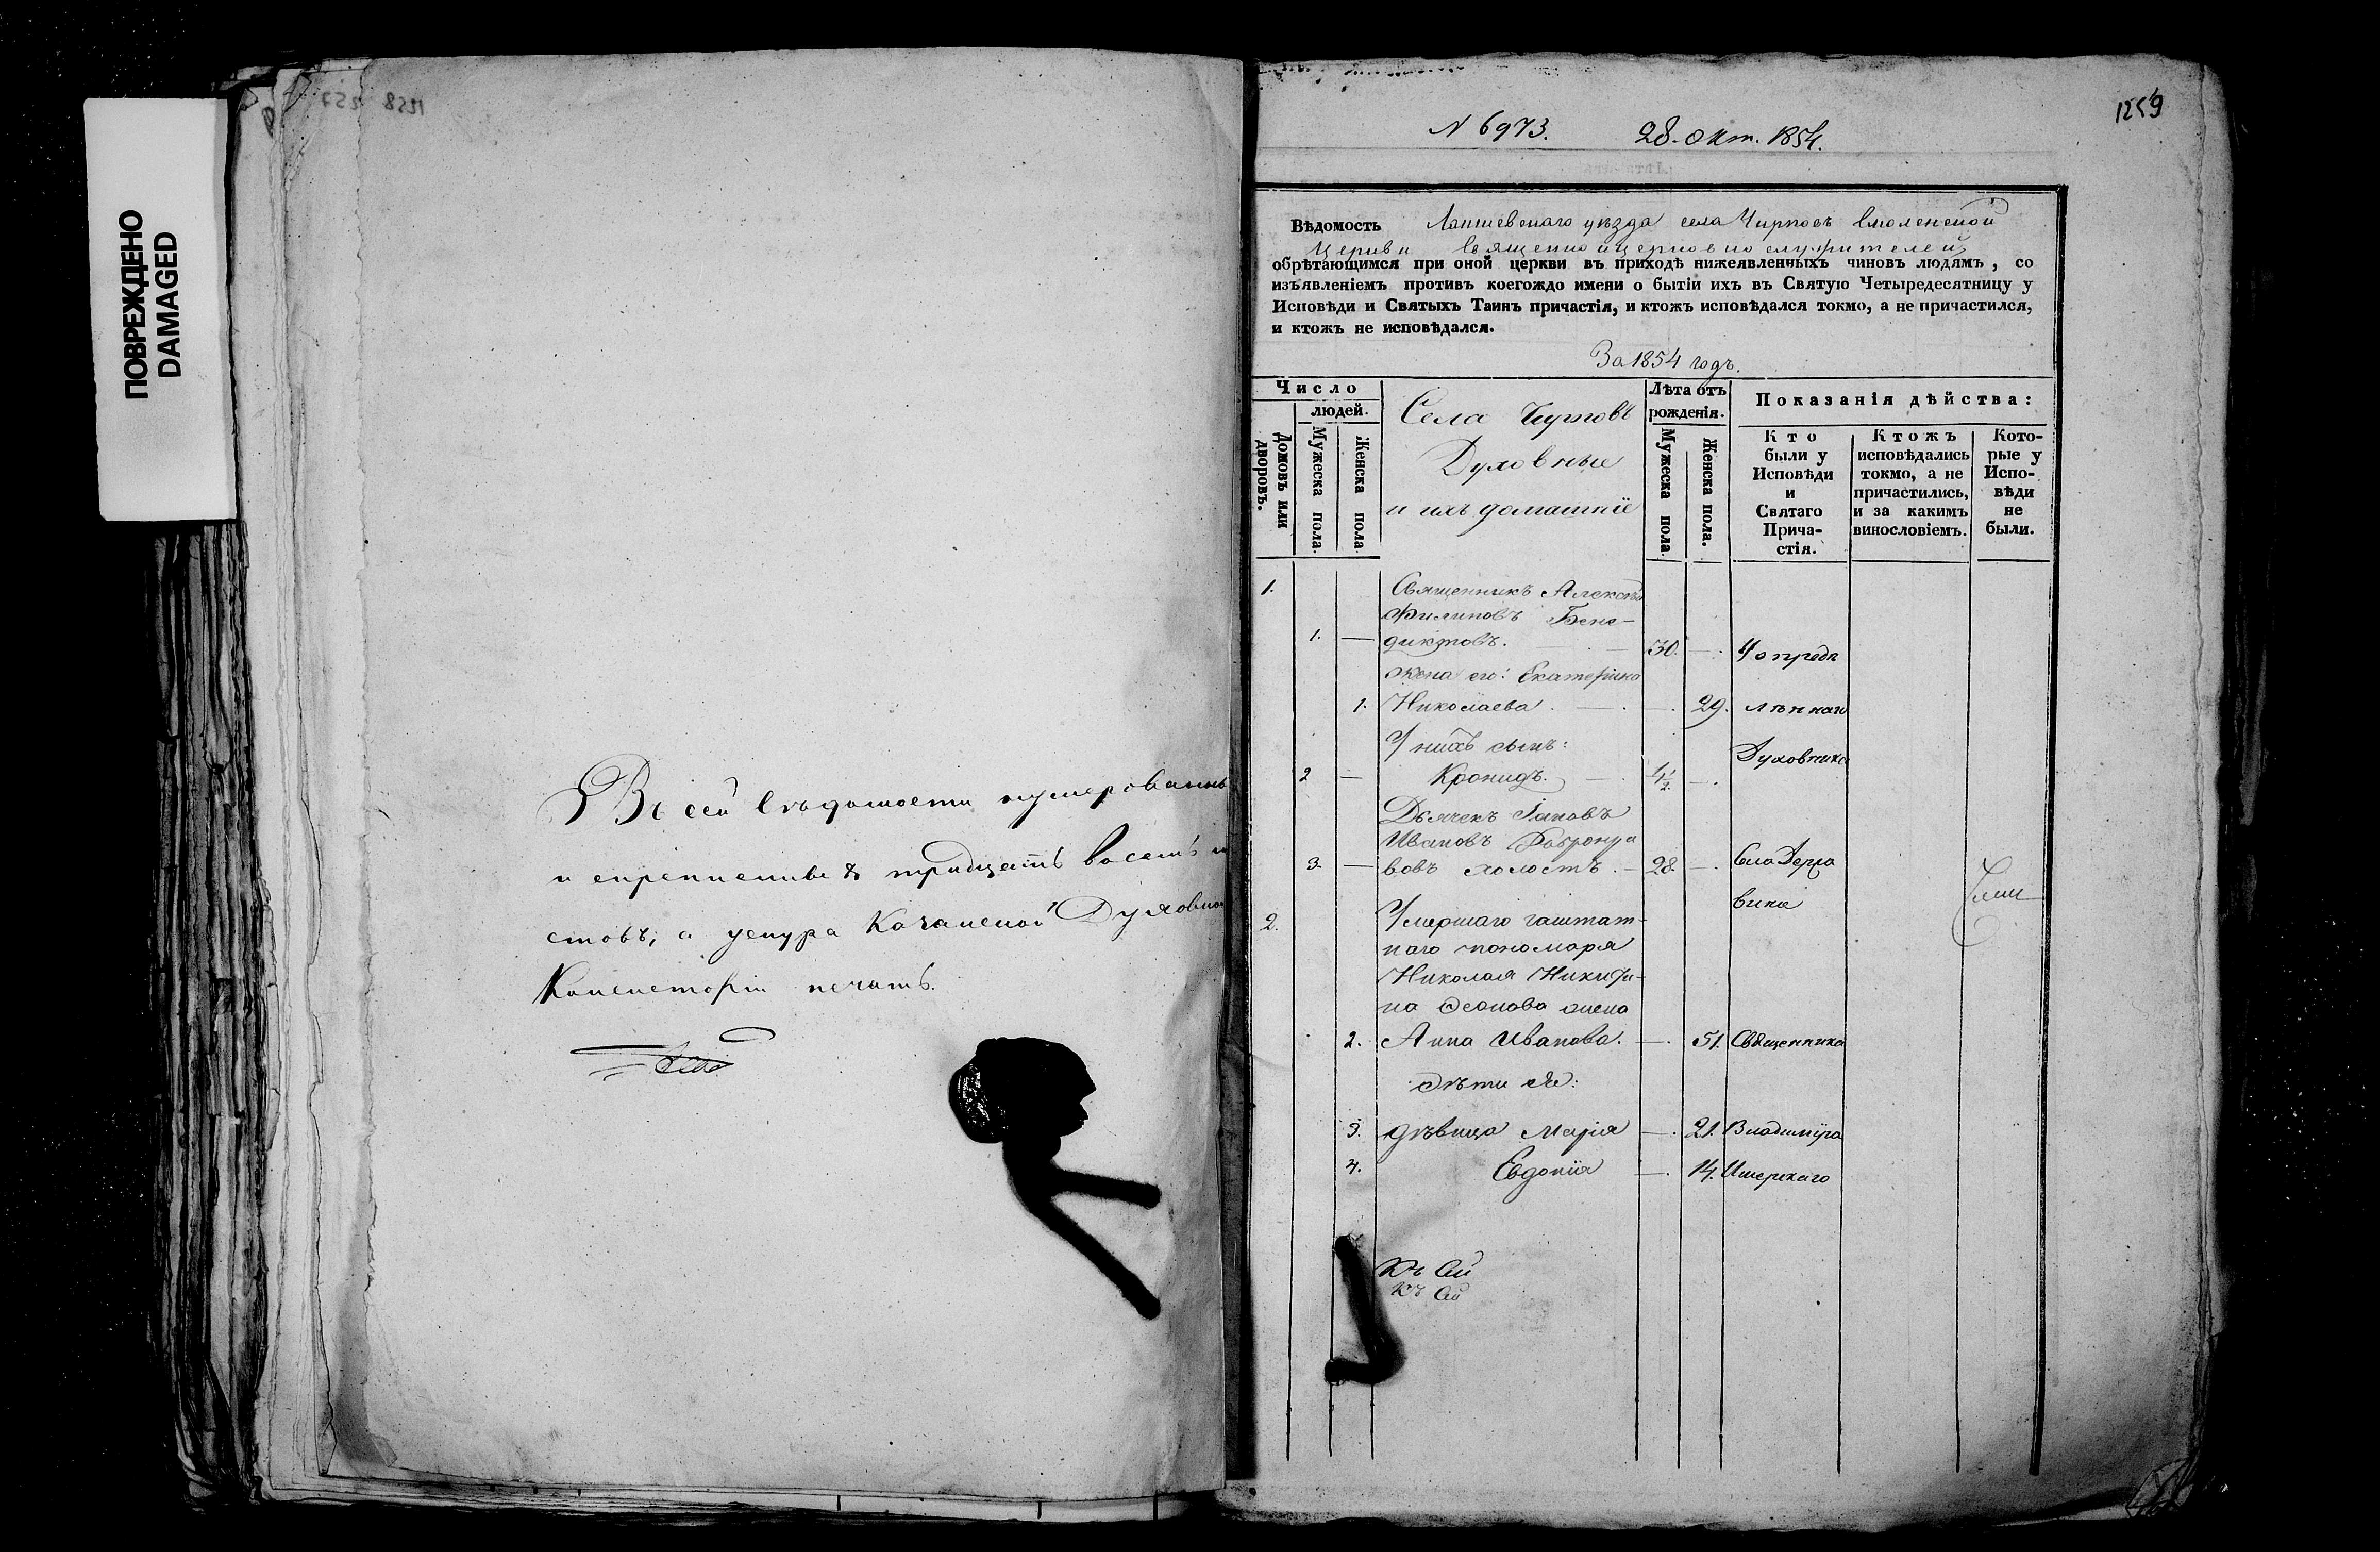 ПОВРЕЖДЕНО
DAMAGED
Въ сей вѣдомости нумерованныхъ
и скрепленныхъ тридцать восемь ли
стовъ; а уснура Казанской Духовной
Консисторіи печать.
1259
N 6973. 28. Окт. 1854.
Вѣдомость Лаишевскаго уѣзда села Чирповъ Смоленской
Церкви Священноицерковнослужителей
обрѣтающимся при оной церкви въ приходѣ нижеявленныхъ чиновъ людямъ, со
изъявленіемъ противъ коегождо имени о бытіи ихъ въ Святую Четыредесятницу у
Исповѣди и Святыхъ Таинъ причастія, и ктожъ исповѣдался токмо, а не причастился,
и ктожъ не исповѣдался.
За 1854 годъ.
Число
людей.
Домовъ или дворовъ.
Мужеска пола.
Женска пола
Села Чирповъ
Духовные
и ихъ домашніе
Лѣта отъ
рожденія.
Мужеска пола
Женска пола.
Показанія дѣйства:
Кто
были у
Исповѣди
и
Святаго
Прича-
стія.
Ктожъ
исповѣдались
токмо, а не
причастились,
и за какимъ
винословіемъ.
Кото-
рые у
Испо-
вѣди
не
были.
1. Священникъ Алексѣй
Филиповъ Бене-
1. — диктовъ. 30. — У опредѣ
жена его: Екатерина
1. Николаева. — 29. лѣннаго
У нихъ сынъ: Духовника
2 — Кронидъ. 4½ —
Дьячекъ Іаковъ
Ивановъ
3. — вовъ холостъ. — 28. —
2. Умершаго заштат-
наго пономаря
Николая Никити-
на жена
2. Анна Иванова. — 51. Священника
дѣти ея:
3. дѣвица Марія — 21. Владиміра
4. Евдокія — 14.
Къ сей
Къ сей